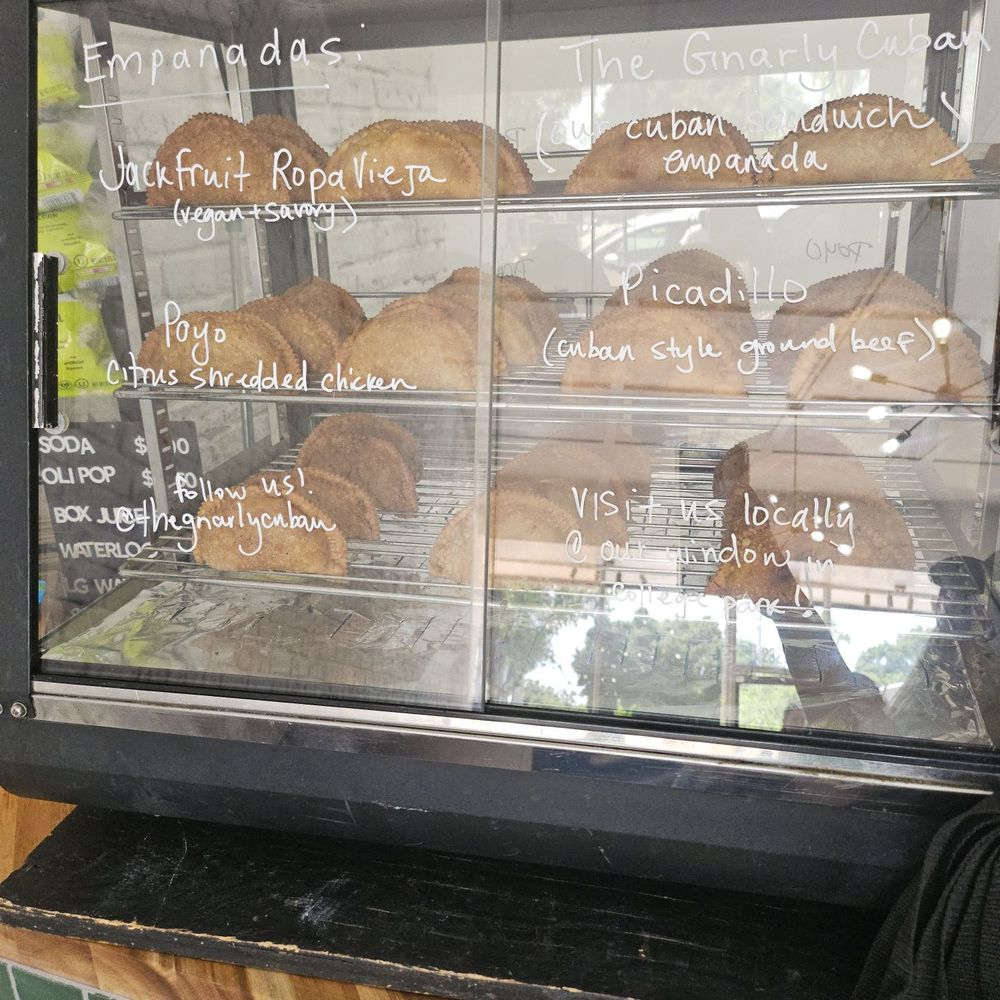 Empanadas:
Jackfruit Ropa Vieja
(vegan + savory)
Poyo
Citrus shredded chicken
follow us!
@thegnarlycuban
The Gnarly Cuban
(our cuban sandwich
empanada)
Picadillo
(cuban style ground beef)
Visit us locally
@ our window in
College park!
SODA $
OLI POP $
BOX JUICE
WATERLO
LG WA